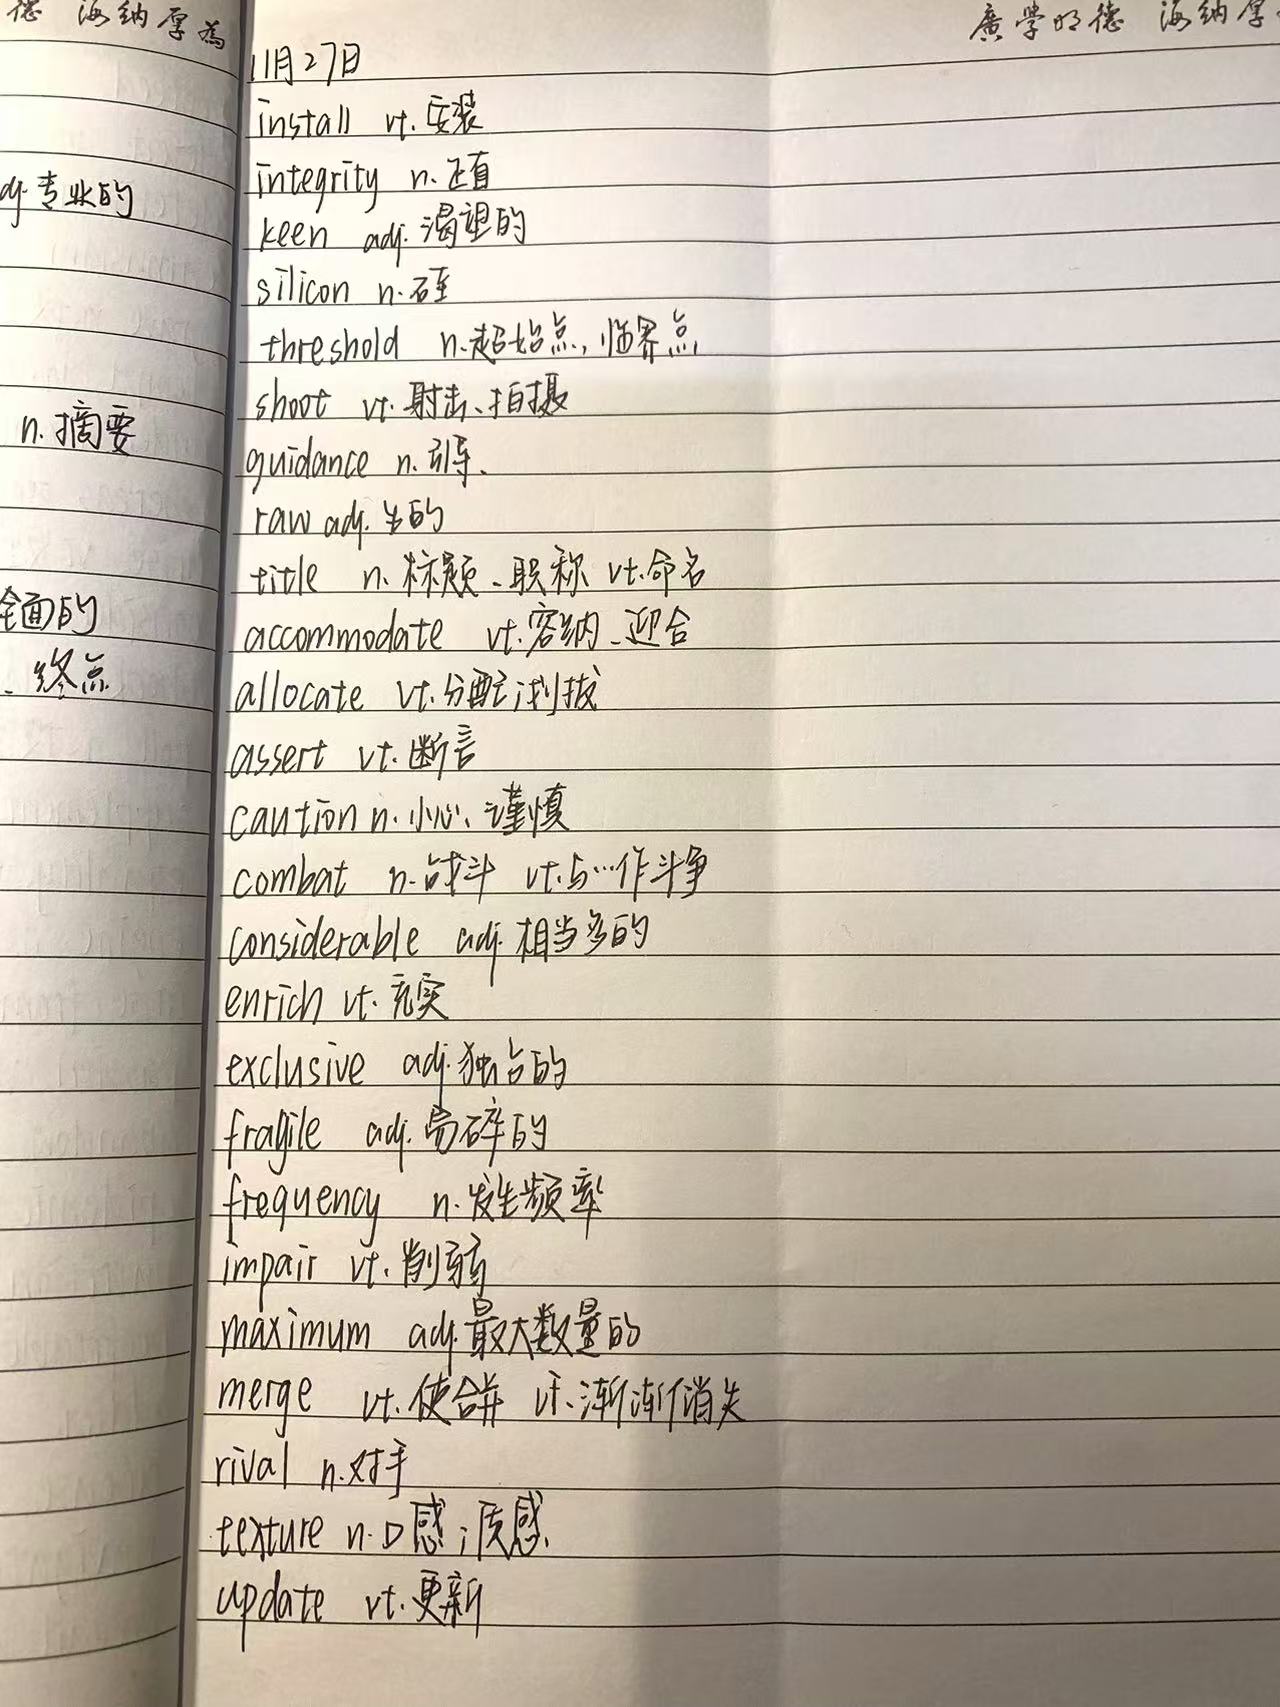 德 海纳厚為
廣學明德 海纳厚
adj.专业的
n.摘要
全面的
、终点
11月27日
install vt.安装
integrity n.正直
keen adj.渴望的
silicon n.硅
threshold n.起始点,临界点
shoot vt.射击、拍摄
guidance n.引导、
raw adj.生的
title n.标题、职称 vt.命名
accommodate vt.容纳、迎合
allocate vt.分配;划拔
assert vt.断言
caution n.小心、谨慎
combat n.战斗 vt.与…作斗争
considerable adj.相当多的
enrich vt.充实
exclusive adj.独占的
fragile adj.易碎的
frequency n.发生频率
impair vt.削弱
maximum adj.最大数量的
merge vt.使合并 vi.渐渐消失
rival n.对手
texture n.口感;质感
update vt.更新